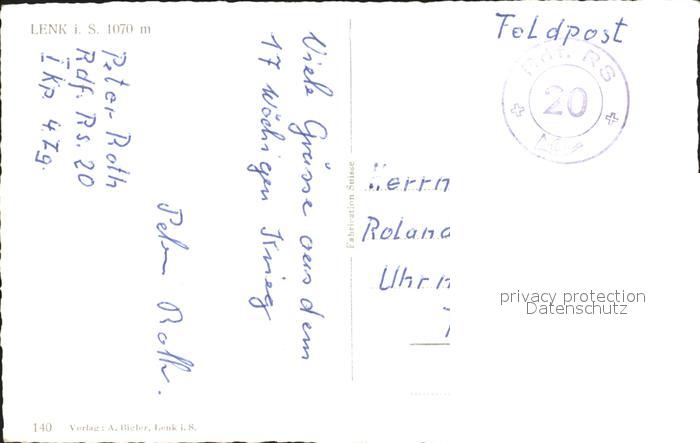 LENK i. S. 1070 m
Peter Roth
Rdf. Rs. 20
I Kp. 4. Zg.
Viele Grüsse aus dem
17 wöchigen Krieg
Peter Roth.
140 Verlag: A. Bigler, Lenk i. S.
Fabrication Suisse
Feldpost
Rdf. RS
20
Herrn
Roland
Uhrm
privacy protection
Datenschutz